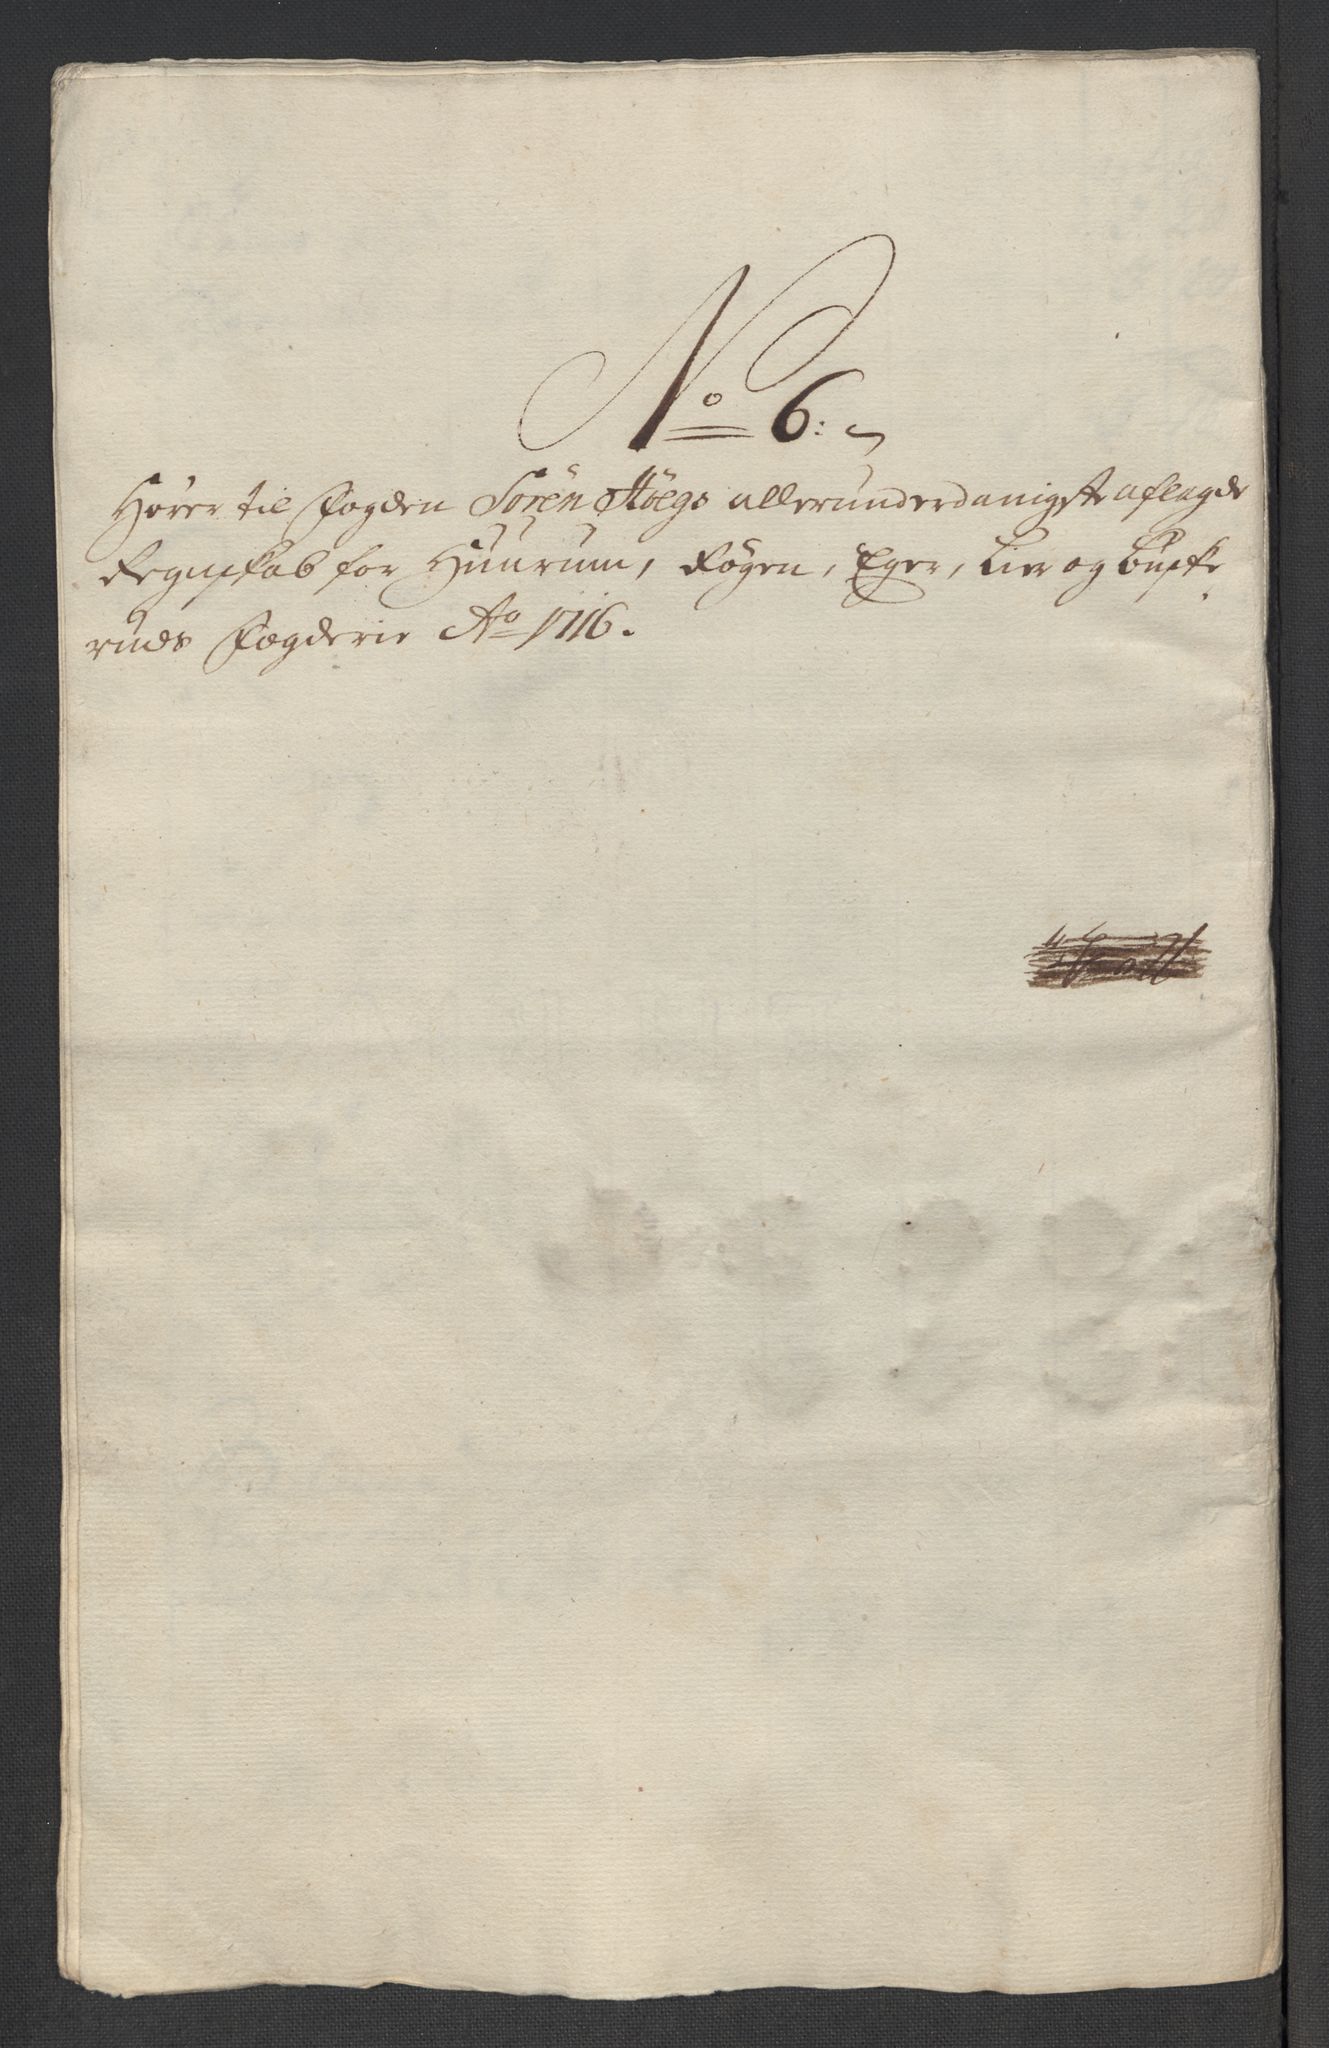 No 6:
Hører til Fogden Sören Höegs allerunderdanigste aflagde
Regnskab for Huurum, Røgen, Eger, Lier og Buske
ruds Fogderie Ao 1716.